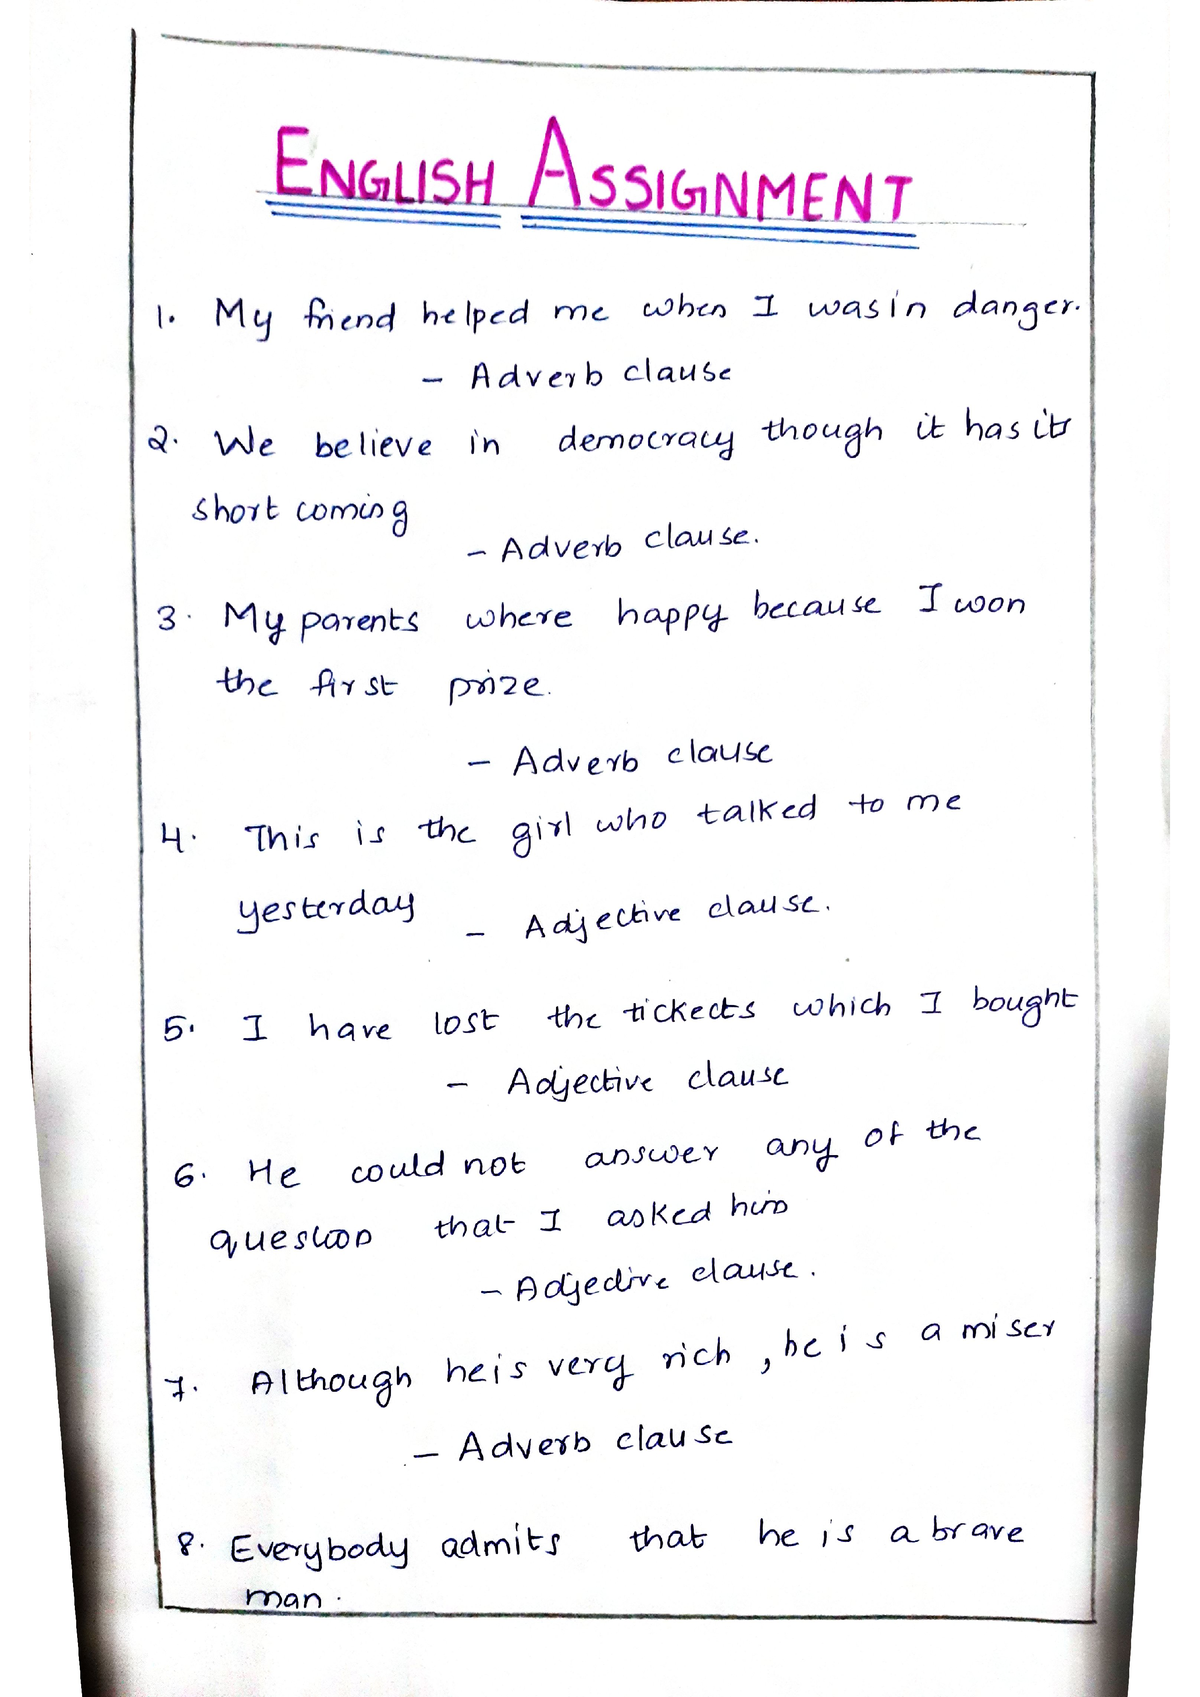 ENGLISH ASSIGNMENT
1. My friend helped me when I was in danger.
- Adverb clause
2. We believe in democracy though it has its
short coming
- Adverb clause.
3. My parents where happy because I won
the first prize.
- Adverb clause
4. This is the girl who talked to me
yesterday - Adjective clause.
5. I have lost the tickects which I bought
- Adjective clause
6. He could not answer any of the
question that I asked him
- Adjective clause.
7. Although he is very rich, he is a miser
- Adverb clause
8. Everybody admits that he is a brave
man.